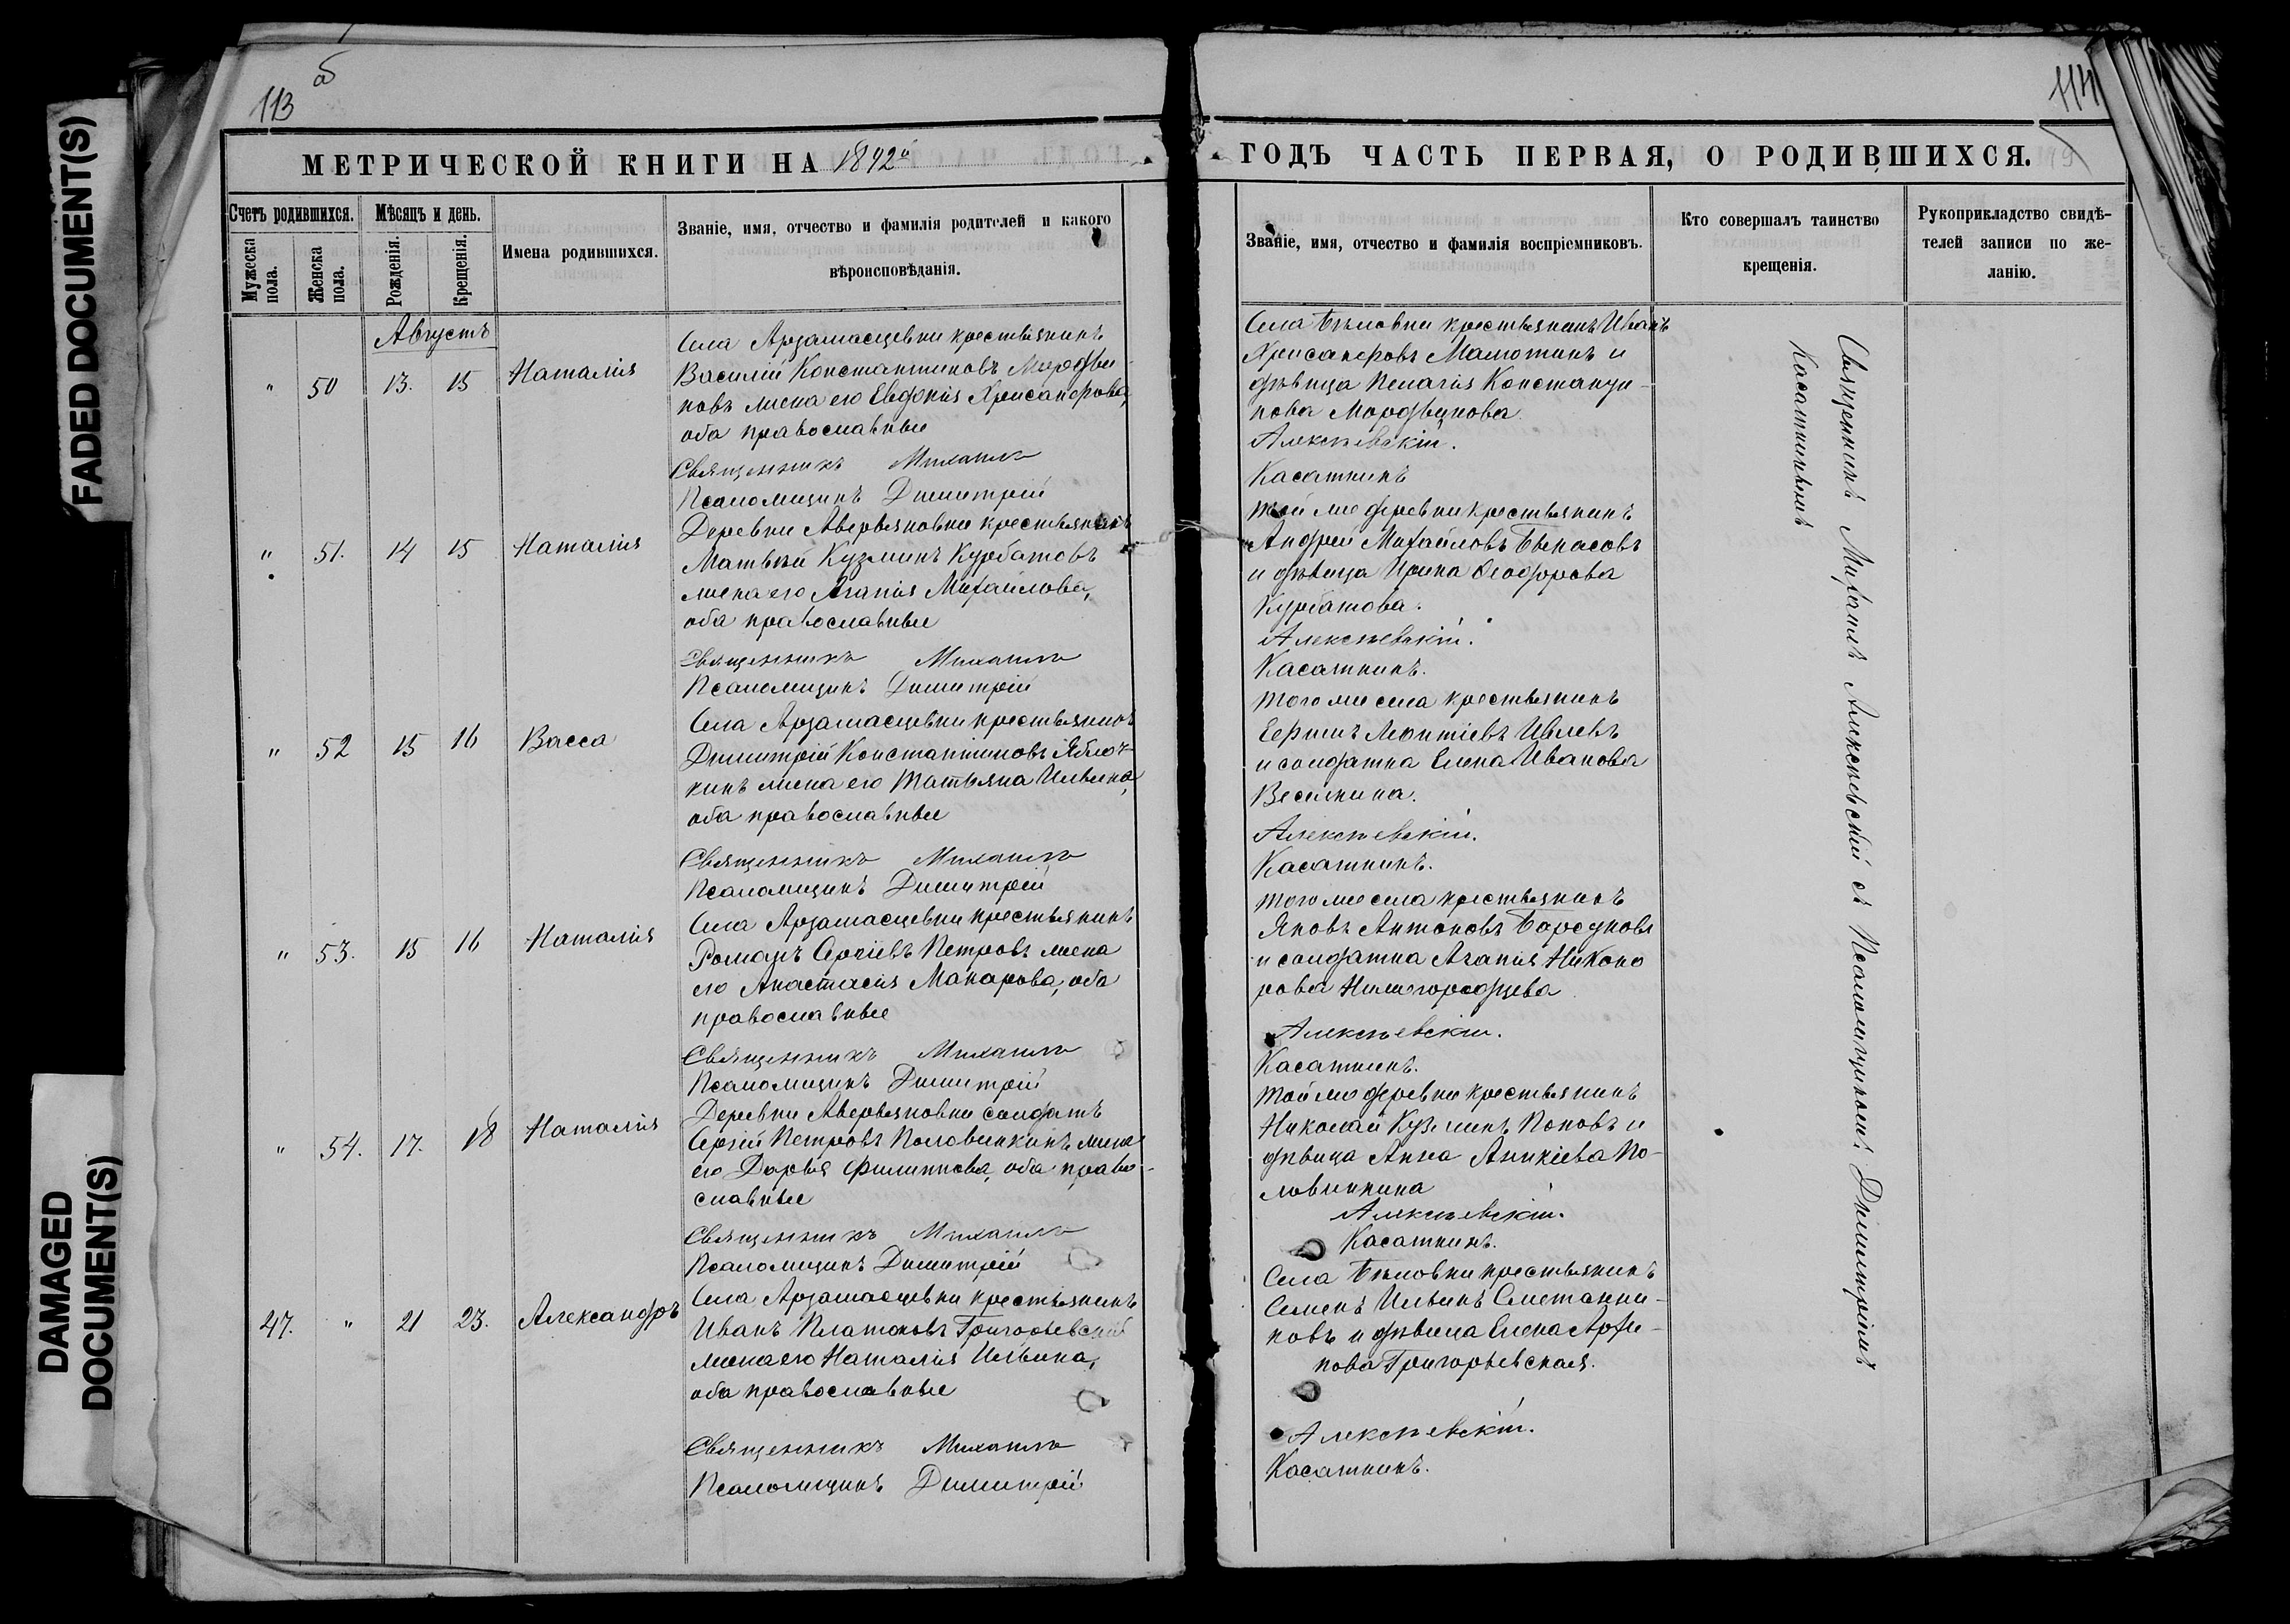 FADED DOCUMENT(S)
DAMAGED
DOCUMENT(S)
113
об
МЕТРИЧЕСКОЙ КНИГИ НА 1892й
Счетъ родившихся.
Мужеска пола.
Женска пола.
Мѣсяцъ и день.
Рожденія.
Крещенія.
Имена родившихся.
Званіе, имя, отчество и фамилія родителей и какого
вѣроисповѣданія.
Августъ
" 50 13. 15 Наталія
Села Арзамасцевки крестьянинъ
Василій Константиновъ Мордви
новъ жена его Евдокія Хрисанфова,
оба православные
Священникъ Михаилъ
Псаломщикъ Димитрій
" 51. 14 15 Наталія
Деревни Аверьяновки крестьянинъ
Матвѣй Кузминъ Курбатовъ
жена его Агапія Михайлова,
оба православные
Священникъ Михаилъ
Псаломщикъ Димитрій
" 52 15 16 Васса
Села Арзамасцевки крестьянинъ
Димитрій Константиновъ Яблоч-
кинъ жена его Татьяна Ильина,
оба православные
Священникъ Михаилъ
Псаломщикъ Димитрій
" 53. 15 16 Наталія
Села Арзамасцевки крестьянинъ
Романъ Сергіевъ Петровъ жена
его Анастасія Макарова, оба
православные
Священникъ Михаилъ
Псаломщикъ Димитрій
" 54. 17. 18 Наталія
Деревни Аверьяновки солдатъ
Сергій Петровъ Половинкинъ жена
его Дарья Филиппова, оба право-
славные
Священникъ Михаилъ
Псаломщикъ Димитрій
47. " 21 23. Александръ
Села Арзамасцевки крестьянинъ
Иванъ Платоновъ Григорьевскій
жена его Наталія Ильина,
оба православные
Священникъ Михаилъ
Псаломщикъ Димитрій
114
ГОДЪ ЧАСТЬ ПЕРВАЯ, О РОДИВШИХСЯ.
Званіе, имя, отчество и фамилія воспріемниковъ.
Кто совершалъ таинство
крещенія.
Рукоприкладство свидѣ-
телей записи по же-
ланію.
Села Бѣловки крестьянинъ Иванъ
Хрисанфовъ Мамоткинъ и
дѣвица Пелагія Константи-
нова Мордвинова
Алексѣевскій.
Касаткинъ
той же деревни крестьянинъ
Андрей Михайловъ
и дѣвица Ирина Ѳеодорова
Курбатова.
Алексѣевскій.
Касаткинъ.
того же села крестьянинъ
Леонтіевъ Ивлевъ
и солдатка Елена Иванова
Веселкина.
Алексѣевскій.
Касаткинъ.
того же села крестьянинъ
Яковъ Антоновъ
и солдатка Агапія Никано
рова Нижегородцева
Алексѣевскій.
Касаткинъ.
той же деревни крестьянинъ
Николай Кузминъ Поповъ и
дѣвица Анна Аникіева По-
ловинкина
Алексѣевскій.
Касаткинъ.
Села Бѣловки крестьянинъ
Семенъ Ильинъ Сметанни-
ковъ и дѣвица Елена Архи-
пова Григорьевская.
Алексѣевскій.
Касаткинъ.
Священникъ Михаилъ Алексѣевскій съ Псаломщикомъ Димитріемъ
Касаткинымъ